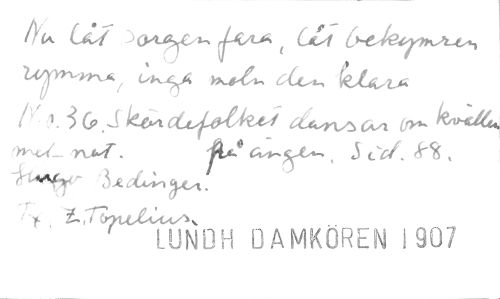 Nu låt sorgen fara, låt bekymren
rymma, inga moln den klara
No. 36. Skördefolket dansar om kvällen
på ängen. Sid. 88.
Bedinger.
Tx. Z. Topelius.
LUNDH DAMKÖREN 1907